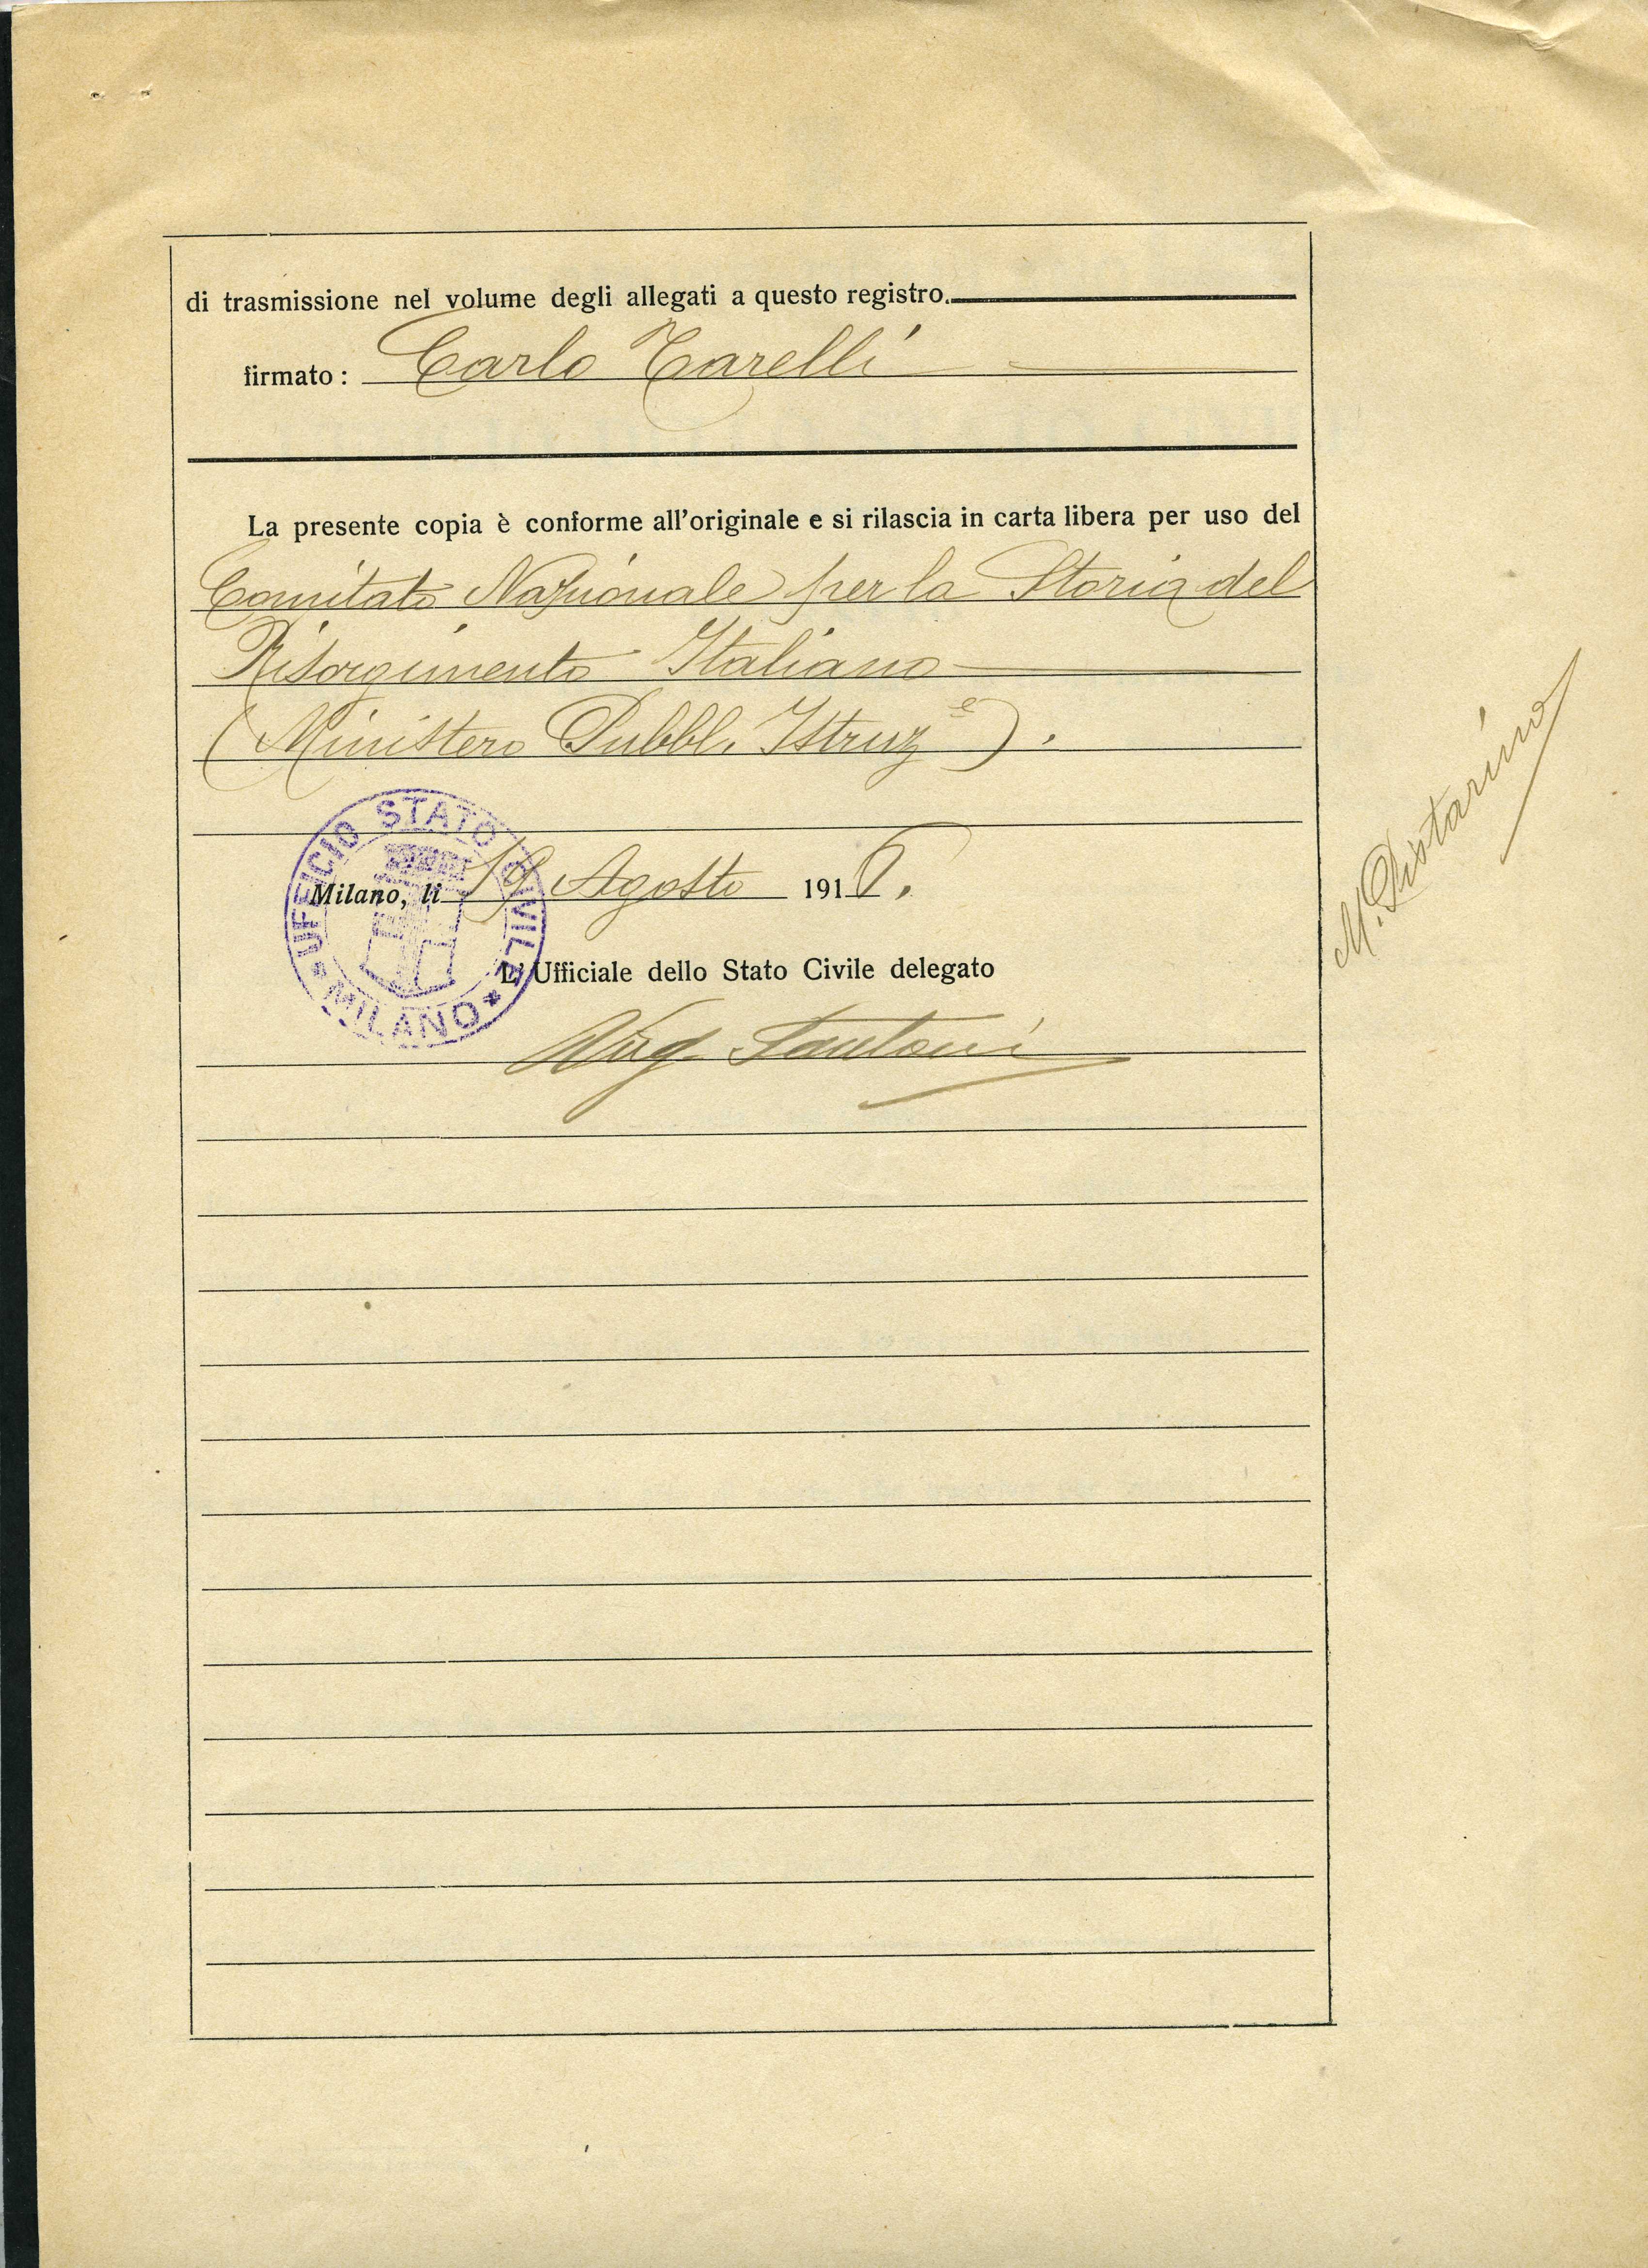 di trasmissione nel volume degli allegati a questo registro.
firmato: Carlo Carelli
La presente copia è conforme all'originale e si rilascia in carta libera per uso del
Comitato Nazionale per la Storia del
Risorgimento Italiano
(Ministero Pubbl. Istruzᵉ).
UFFICIO STATO CIVILE
* MILANO *
Milano, li 19 Agosto 1916.
L'Ufficiale dello Stato Civile delegato
Santoni
M. Pistarino